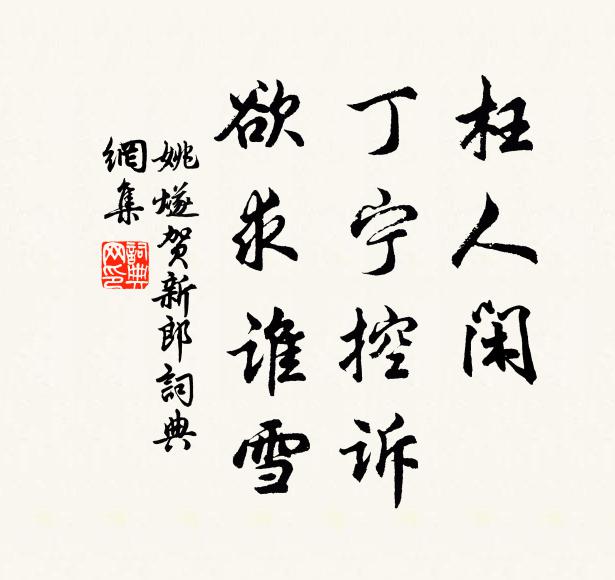 枉人闲
丁宁控诉
欲求谁雪
姚燧贺新郎詞典
網集
詞典網印